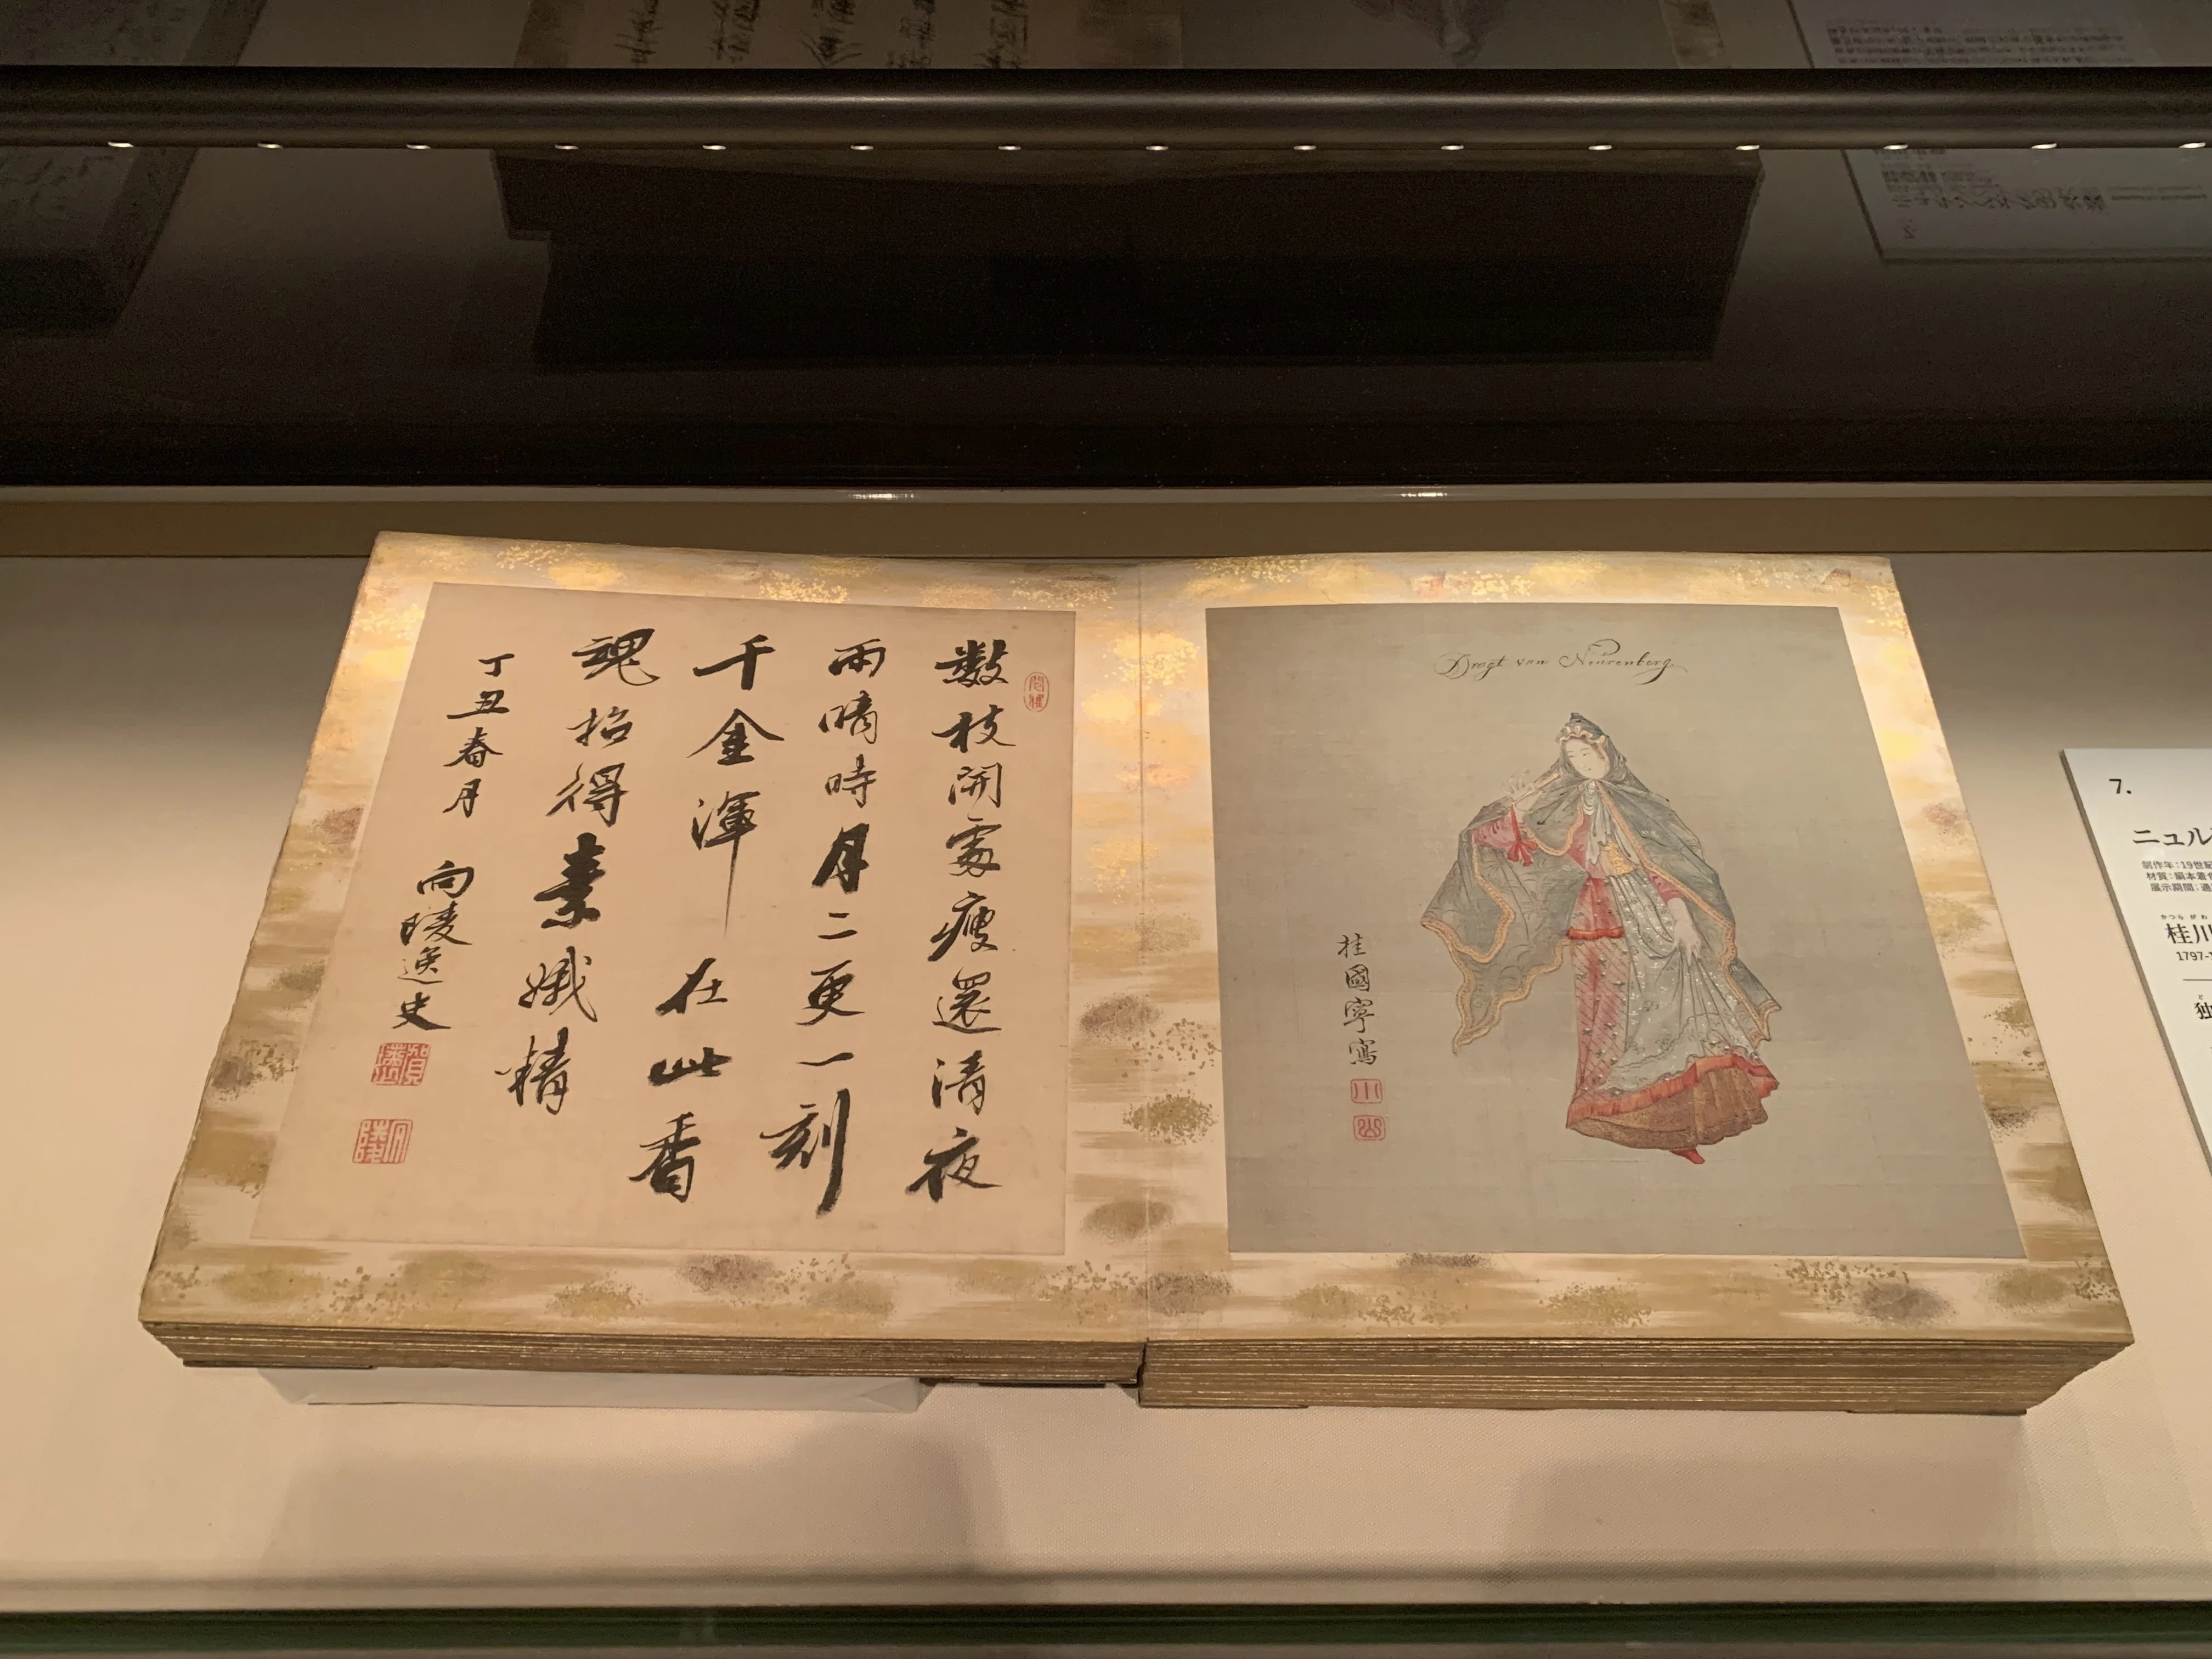 数枝開處瘦還清夜
雨晴時月二更一刻
千金渾在此香
魂招得素娥精
丁丑春月
向陵逸史
Dragt van Neurenberg
桂國寧寫
7.
ニュル
制作年：19世紀
材質：絹本着色
展示期間：通
かつらがわ
桂川
1797-1
独